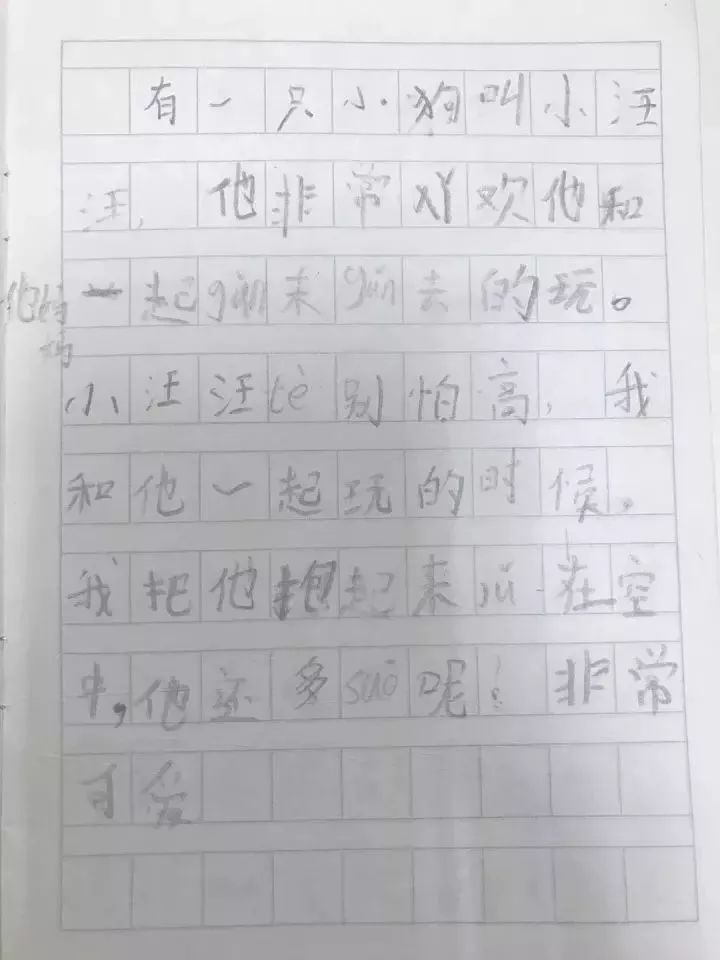 有一只小狗叫小汪
汪，他非常欢他和
他妈妈一起gǔn来gǔn去的玩。
小汪汪tè别怕高，我
和他一起玩的时候。
我把他抱起来在空
中，他还多suō呢！非常
可爱